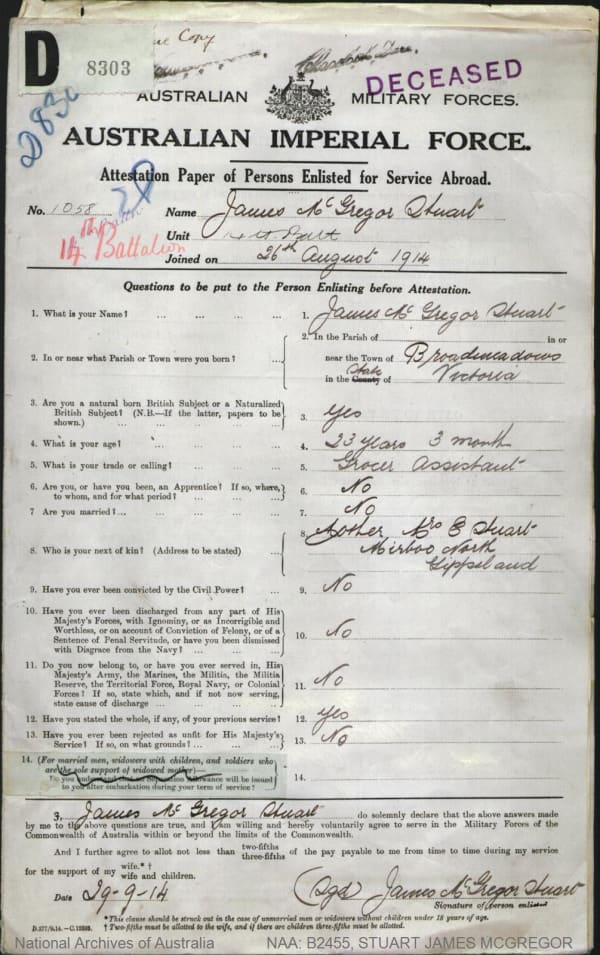 D 8303
True Copy
DECEASED
AUSTRALIAN MILITARY FORCES.
AUSTRALIAN IMPERIAL FORCE.
Attestation Paper of Persons Enlisted for Service Abroad.
No. 1058 Name James Mc Gregor Stuart
14 Battalion
Unit 14th Batt
Joined on 26th August 1914
Questions to be put to the Person Enlisting before Attestation.
1. What is your Name? ... ... ... ... 1. James Mc Gregor Stuart
2. In or near what Parish or Town were you born? ...
2. In the Parish of in or
near the Town of Broadmeadows
in the State County of Victoria
3. Are you a natural born British Subject or a Naturalized
British Subject? (N.B.—If the latter, papers to be
shown.) ... ... ... ... 3. Yes
4. What is your age? ... ... ... 4. 23 years 3 month
5. What is your trade or calling? ... ... ... 5. Grocer Assistant
6. Are you, or have you been, an Apprentice? If so, where,
to whom, and for what period? ... ... ... 6. No
7 Are you married? ... ... ... ... 7. No
8. Who is your next of kin? (Address to be stated) ...
8. Mother Mrs E Stuart
Mirboo North
Gippsland
9. Have you ever been convicted by the Civil Power? ... 9. No
10. Have you ever been discharged from any part of His
Majesty's Forces, with Ignominy, or as Incorrigible and
Worthless, or on account of Conviction of Felony, or of a
Sentence of Penal Servitude, or have you been dismissed
with Disgrace from the Navy? ... ... ... 10. No
11. Do you now belong to, or have you ever served in, His
Majesty's Army, the Marines, the Militia, the Militia
Reserve, the Territorial Force, Royal Navy, or Colonial
Forces? If so, state which, and if not now serving,
state cause of discharge ... ... ... 11. No
12. Have you stated the whole, if any, of your previous service? 12. Yes
13. Have you ever been rejected as unfit for His Majesty's
Service? If so, on what grounds? ... ... ... 13. No
14. (For married men, widowers with children, and soldiers who
are the sole support of widowed mother)—
Do you understand that no Separation Allowance will be issued
to you after embarkation during your term of service? 14.
I, James Mc Gregor Stuart do solemnly declare that the above answers made
by me to the above questions are true, and I am willing and hereby voluntarily agree to serve in the Military Forces of the
Commonwealth of Australia within or beyond the limits of the Commonwealth.
And I further agree to allot not less than two-fifths three-fifths of the pay payable to me from time to time during my service
for the support of my wife.* † wife and children.
Date 29-9-14 (Sgd) James McGregor Stuart
Signature of person enlisted
*This clause should be struck out in the case of unmarried men or widowers without children under 18 years of age.
D.277/9.14.—C.12535. † Two-fifths must be allotted to the wife, and if there are children three-fifths must be allotted.
National Archives of Australia NAA: B2455, STUART JAMES MCGREGOR